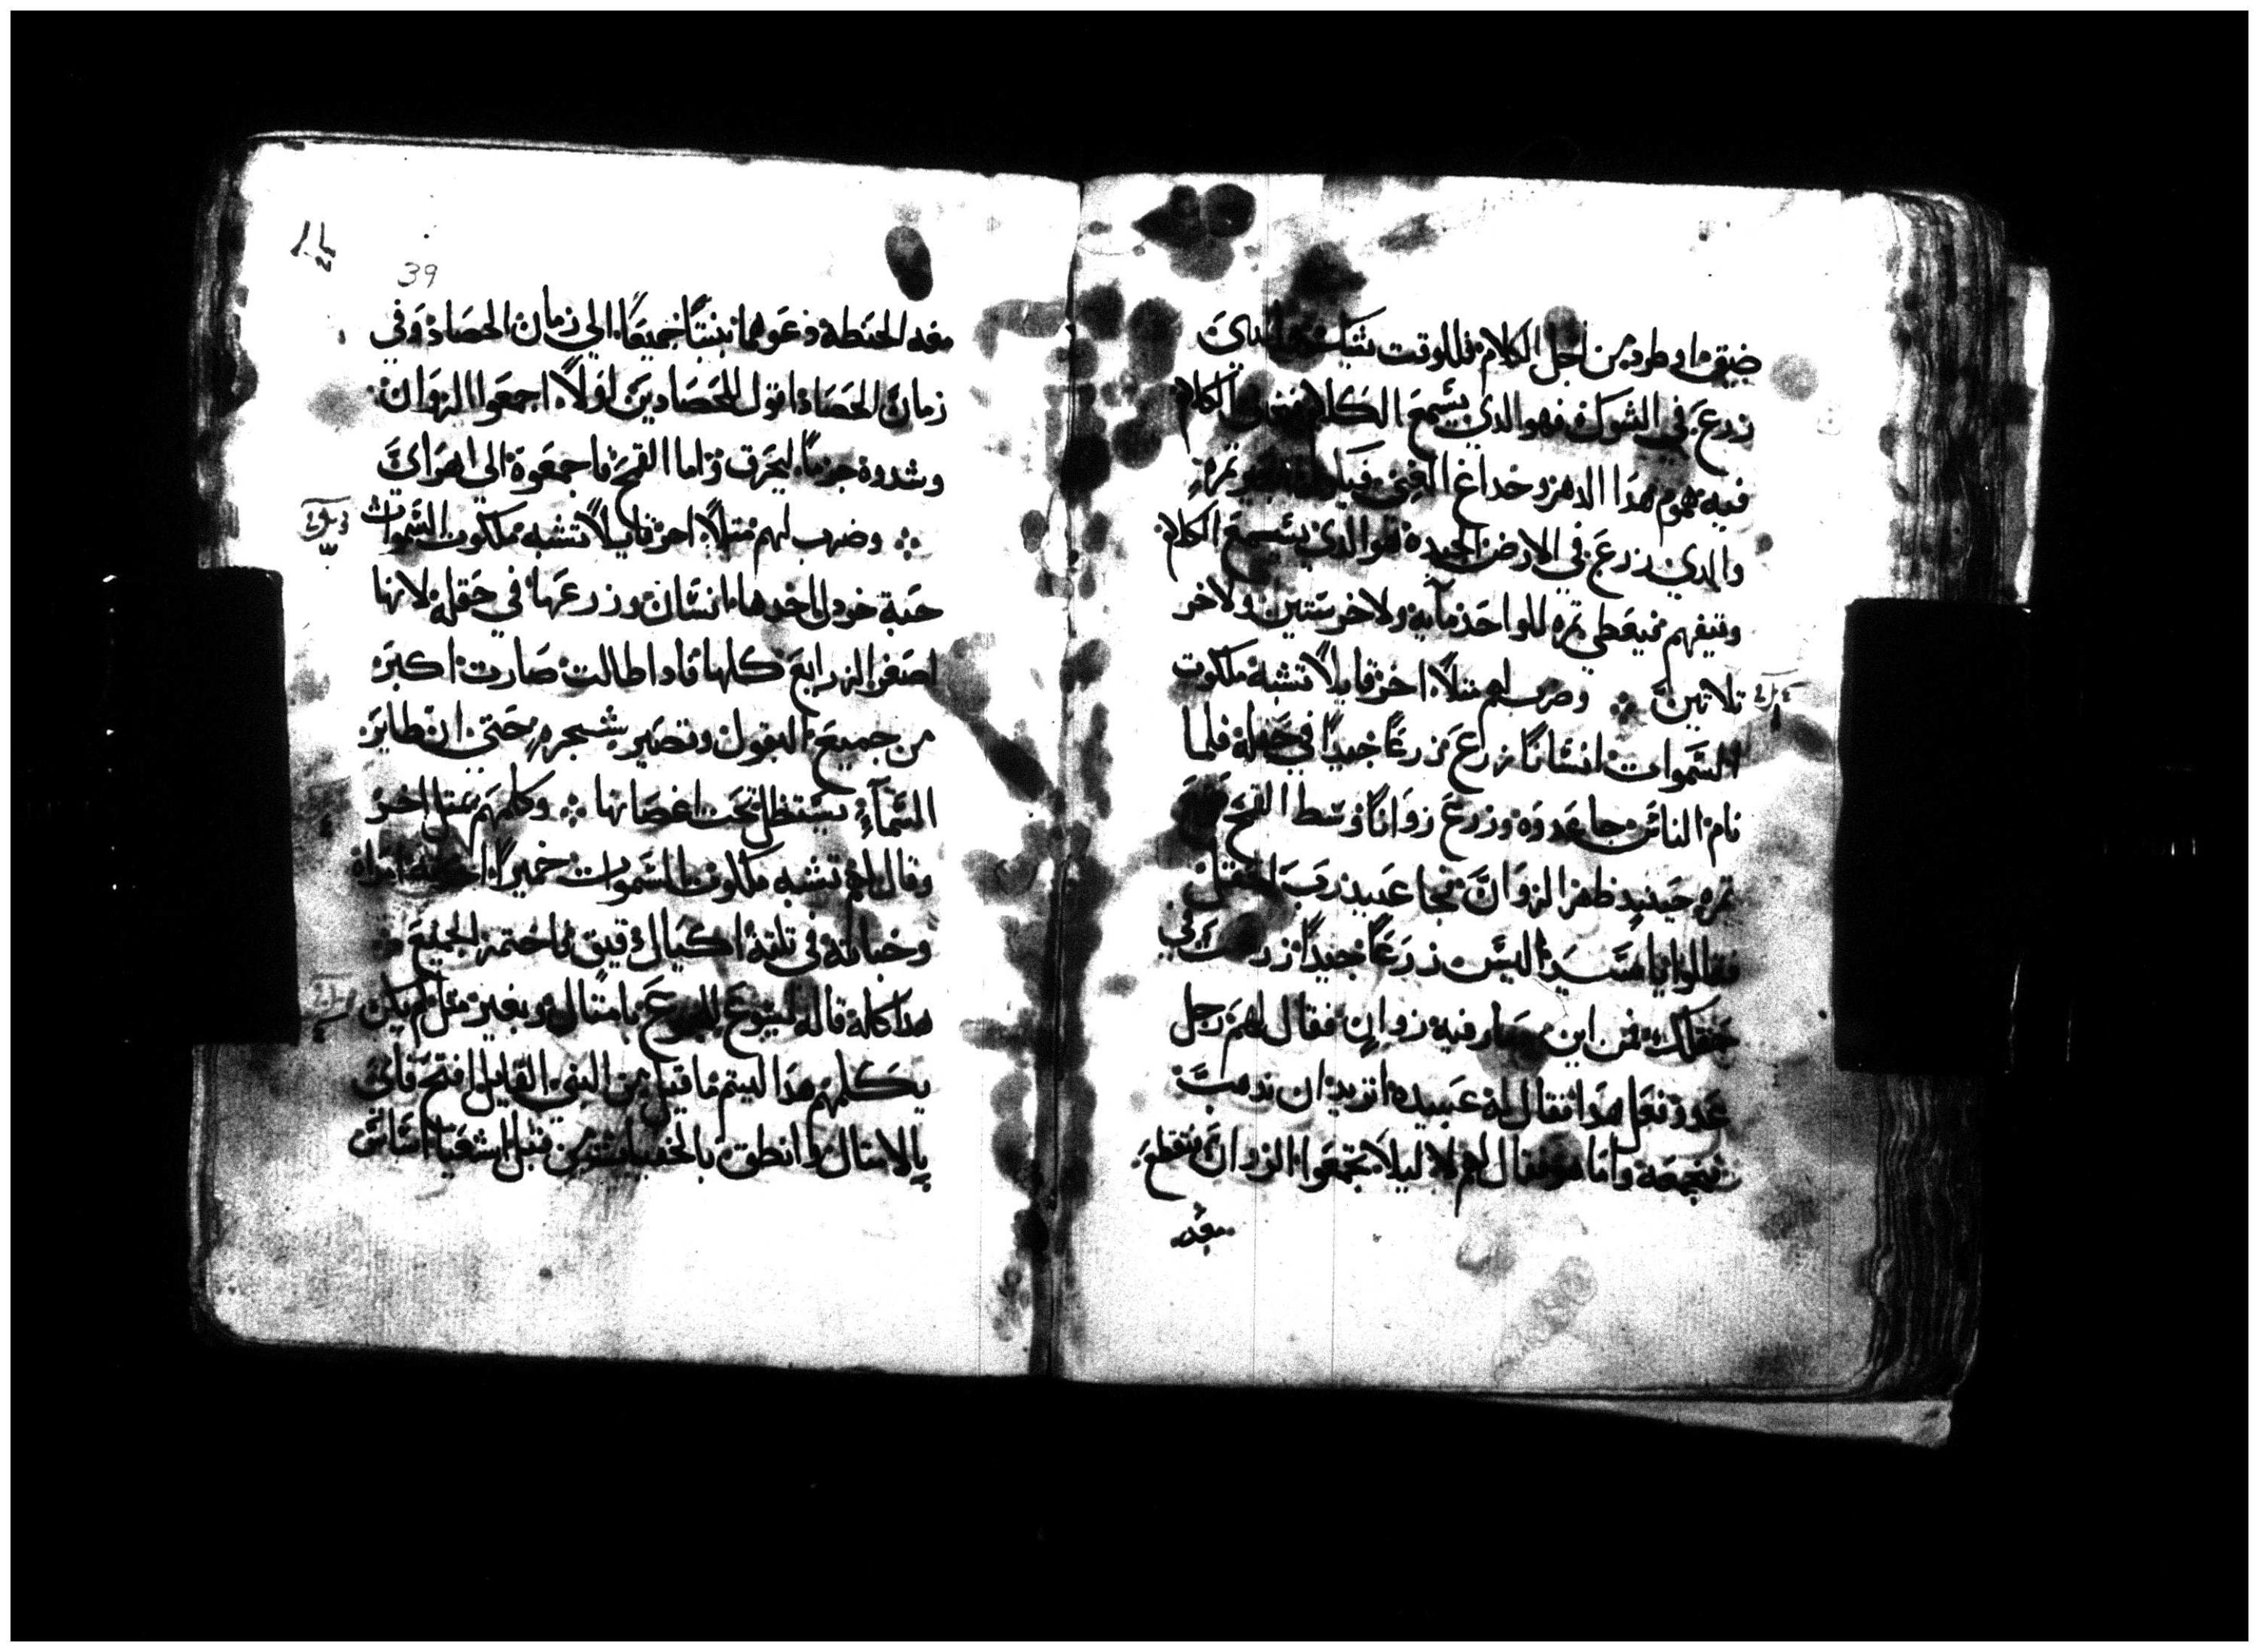 ضيق او طرد من اجل الكلام فللوقت يشك والدي
زرع في الشوك فهو الدي يسمع الكلام الكلام
فيه هموم هدا الدهر وخداع الغني ثمره
والدي زرع في الارض الجيده هو الدي يسمع الكلام
ويتفهم فيعطي ثمره للواحد مآيه ولاخر ستين ولاخر
تلاتين وضرب لهم متلاً اخر قايلاً تشبه ملكوت
السموات انسانا زرع زرعاً جيداً في حقله فلما
نام الناس جا عدوه وزرع زواناً وسط القمح
تمره حينيد ظهر الزوان فجا عبيد رب الحقل
فقالوا يا سيد اليس زرعاً جيداً زرعت في
حقلك فمن اين صار فيه زوان فقال لهم رجل
عدو فعل هدا فقال له عبيده اتريد ان ندهب
فنجمعه واما هو فقال لهم لا ليلا تجمعوا الزوان فتقطع
معه
39
معه الحنطه دعوهما ينبتا جميعاً الي زمان الحصاد وفي
زمان الحصاد اقول للحصادين اولاً اجمعوا الزوان
وشدوه حزماً ليحرق واما القمح فاجمعوه الي اهراي
وضرب لهم متلاً اخر قايلاً تشبه ملكوت السموات
حبة خردل اخدها انسان وزرعها في حقله لانها
اصغر الزرايع كلها فادا طالت صارت اكبر
من جميع البقول وتصير شجره حتي ان طاير
السمآء يستظل تحت اغصانها وكلمهم بمتل اخر
وقال لهم تشبه ملكوت السموات خميراً اخدته امراه
وخباته في تلتة اكيال دقيق فاختمر الجميع
هدا كله قاله ليسوع للجموع بامتال وبغير متل لم يكن
يكلمهم هدا ليتم ما قيل من النبي القايل افتح فاي
بالامتال وانطق بالخفيات من قبل اساس